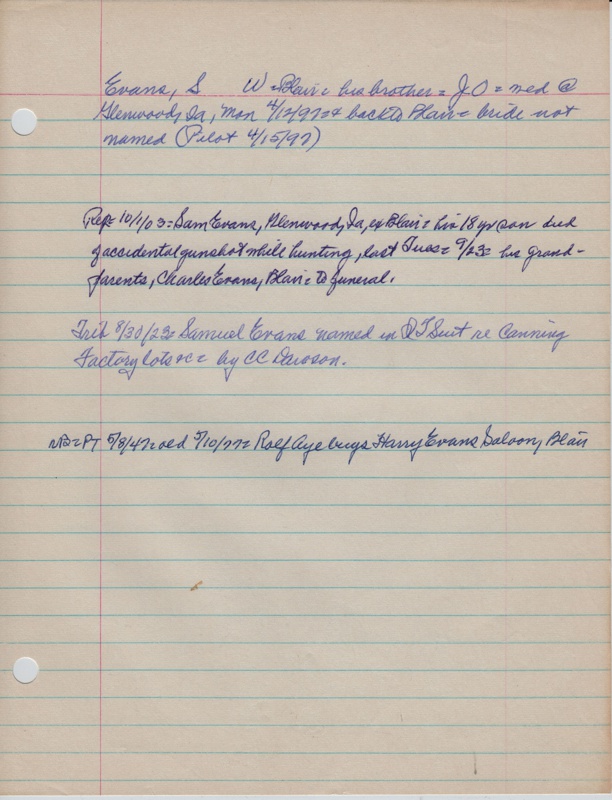 Evans, S W = Blair = his brother = J O = wed @
Glenwood, Ia, Mon 4/12/97 = & back to Blair = bride not
named (Pilot 4/15/97)
Rep = 10/1/03 = Sam Evans, Glenwood, Ia, ex Blair = his 18 yr son died
of accidental gunshot while hunting, last Tues = 9/23 = his grand-
parents, Charles Evans, Blair = to funeral.
Trib 8/30/23 = Samuel Evans named in QT Suit re Canning
Factory lots &c = by CC
NB = PT 5/8/47 = old 5/10/77 = Rolf Aye buys Harry Evans Saloon, Blair